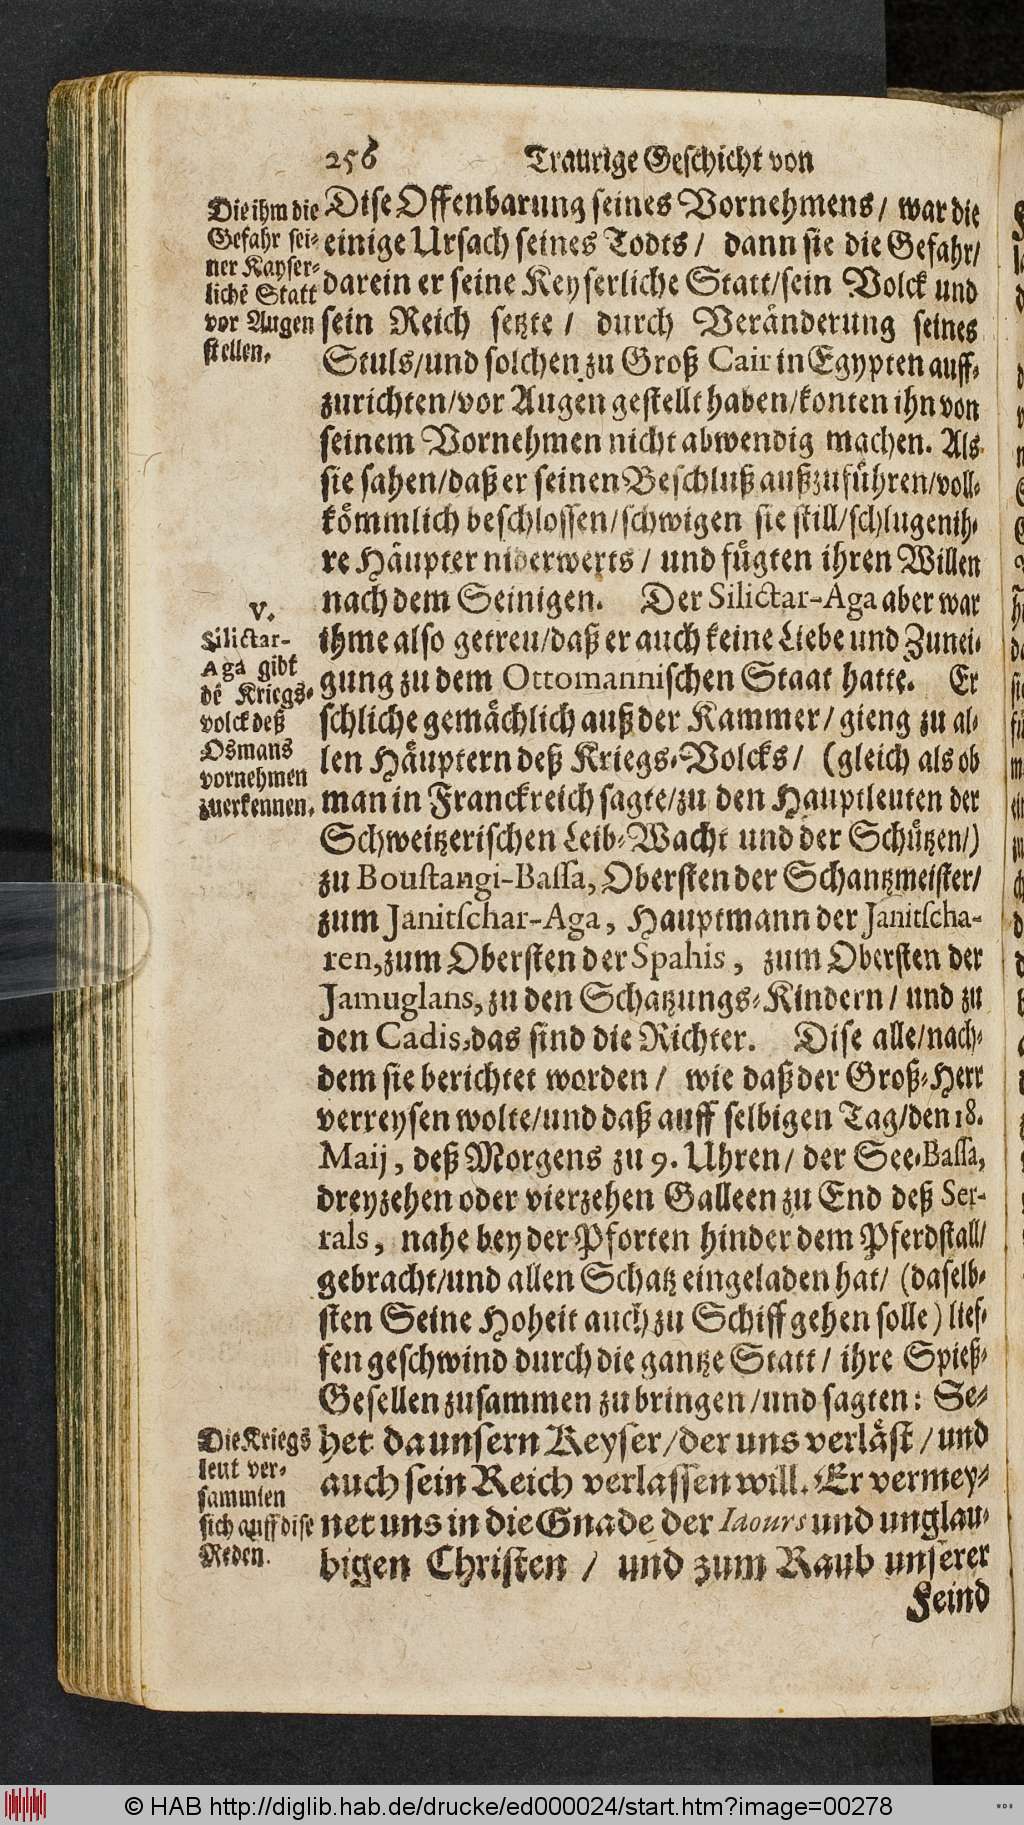 256 Traurige Geschicht von
Die ihm die
Gefahr sei-
ner Kayser-
lichē Statt
vor Augen
stellen.
Dise Offenbarung seines Vornehmens / war die
einige Ursach seines Todts / dann sie die Gefahr /
darein er seine Keyserliche Statt / sein Volck und
sein Reich setzte / durch Veränderung seines
Stuls / und solchen zu Groß Cair in Egypten auff-
zurichten / vor Augen gestellt haben / konten ihn von
seinem Vornehmen nicht abwendig machen. Als
sie sahen / daß er seinen Beschluß außzuführen / voll-
kömmlich beschlossen / schwigen sie still / schlugen ih-
re Häupter niderwerts / und fügten ihren Willen
nach dem Seinigen. Der Silictar-Aga aber war
V.
Silictar-
Aga gibt
dē Kriegs-
volck deß
Osmans
vornehmen
zuerkennen.
ihme also getreu / daß er auch keine Liebe und Zunei-
gung zu dem Ottomannischen Staat hatte. Er
schliche gemächlich auß der Kammer / gieng zu al-
len Häuptern deß Kriegs-Volcks / (gleich als ob
man in Franckreich sagte / zu den Hauptleuten der
Schweitzerischen Leib-Wacht und der Schützen /)
zu Boustangi-Bassa, Obersten der Schantzmeister /
zum Janitschar-Aga, Hauptmann der Janitscha-
ren, zum Obersten der Spahis, zum Obersten der
Jamuglans, zu den Schatzungs-Kindern / und zu
den Cadis, das sind die Richter. Dise alle / nach-
dem sie berichtet worden / wie daß der Groß-Herr
verreysen wolte / und daß auff selbigen Tag / den 18.
Maij, deß Morgens zu 9. Uhren / der See-Bassa,
dreyzehen oder vierzehen Galleen zu End deß Ser-
rals, nahe bey der Pforten hinder dem Pferdstall /
gebracht / und allen Schatz eingeladen hat / (daselb-
sten Seine Hoheit auch zu Schiff gehen solle) lief-
fen geschwind durch die gantze Statt / ihre Spieß-
Gesellen zusammen zu bringen / und sagten: Se-
Die Kriegs
leut ver-
sammlen
sich auff dise
Reden.
het da unsern Keyser / der uns verläst / und
auch sein Reich verlassen will. Er vermey-
net uns in die Gnade der Iaours und unglau-
bigen Christen / und zum Raub unserer
Feind
© HAB http://diglib.hab.de/drucke/ed000024/start.htm?image=00278